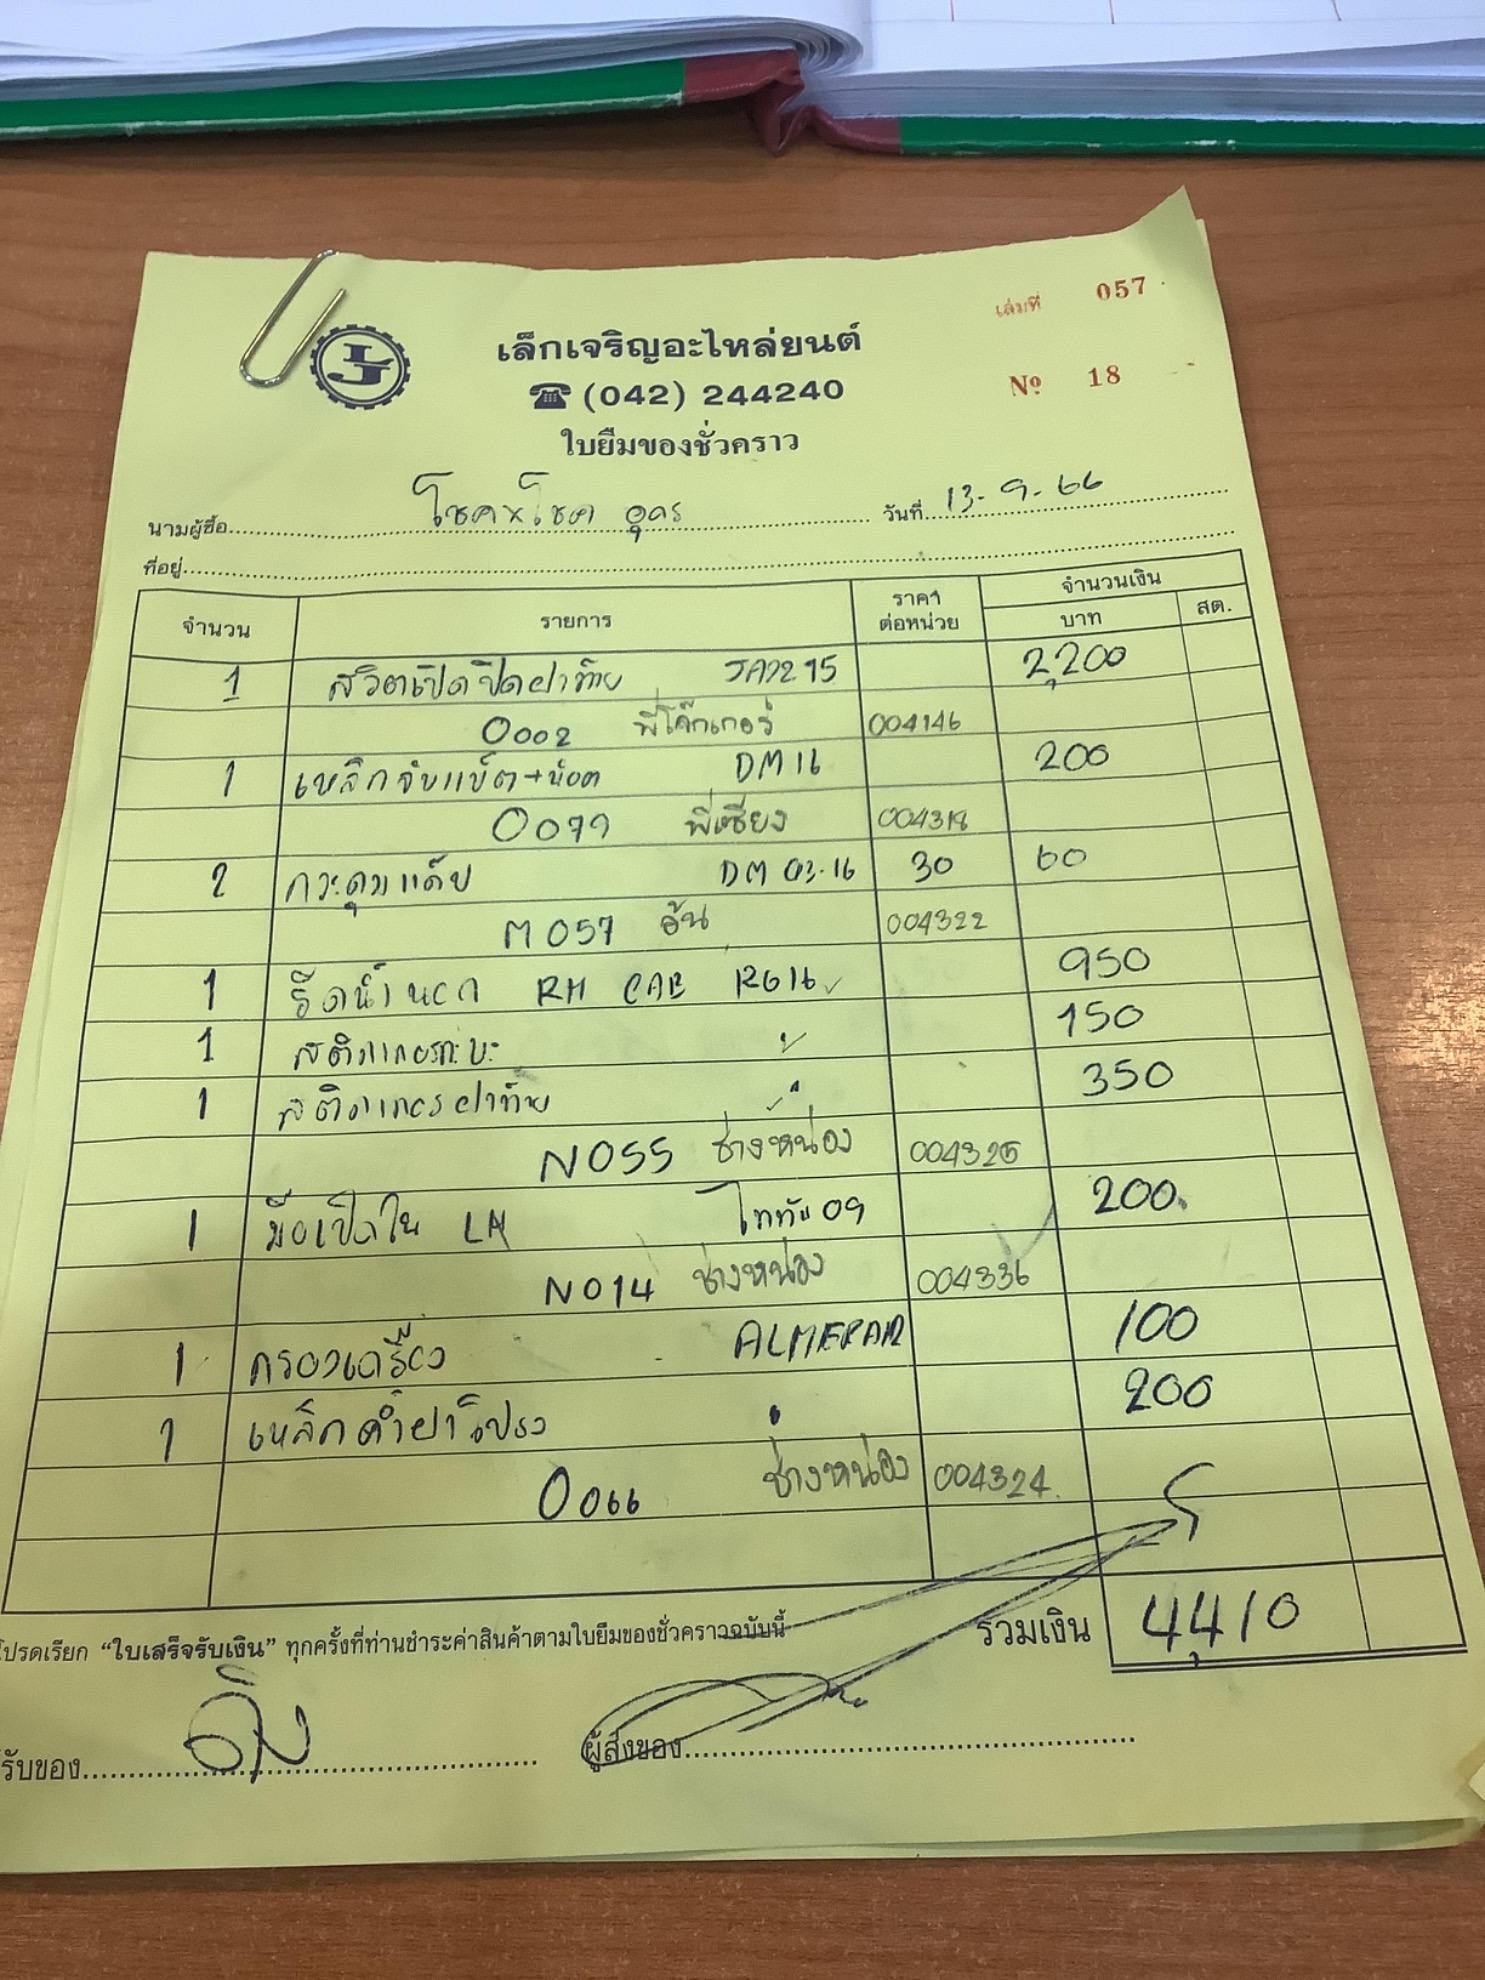 เล่มที่ 057
เล็กเจริญอะไหล่ยนต์
(042) 244240
Nº 18
ใบยืมของชั่วคราว
นามผู้ซื้อ โชคxโชค อุดร วันที่ 13-9-66
ที่อยู่
จำนวน รายการ ราคาต่อหน่วย จำนวนเงิน
บาท สต.
1 สวิตเปิดปิดฝาท้าย 2,200
0002 พี่โจ๊กเกอร์ 004146
1 เหล็กจับแบ็ต+น๊อต DM16 200
0079 พี่เซียง 004318
2 กระดุมแค๊ป DM 03-16 30 60
M057 อ้น 004322
1 รีดน้ำนอก RH CAB RG16 950
1 สติกเกอร์กะบะ " 150
1 สติกเกอร์ฝาท้าย " 350
N055 ช่างหน่อง 004325
1 มือเปิดใน LH ไททัน 09 200
N014 ช่างหน่อง 004336
1 กรองเครื่อง 100
1 เหล็กค้ำฝาโปรง 200
0066 ช่างหน่อง 004324
โปรดเรียก “ใบเสร็จรับเงิน” ทุกครั้งที่ท่านชำระค่าสินค้าตามใบยืมของชั่วคราวฉบับนี้
รวมเงิน 4,410
รับของ ผู้ส่งของ